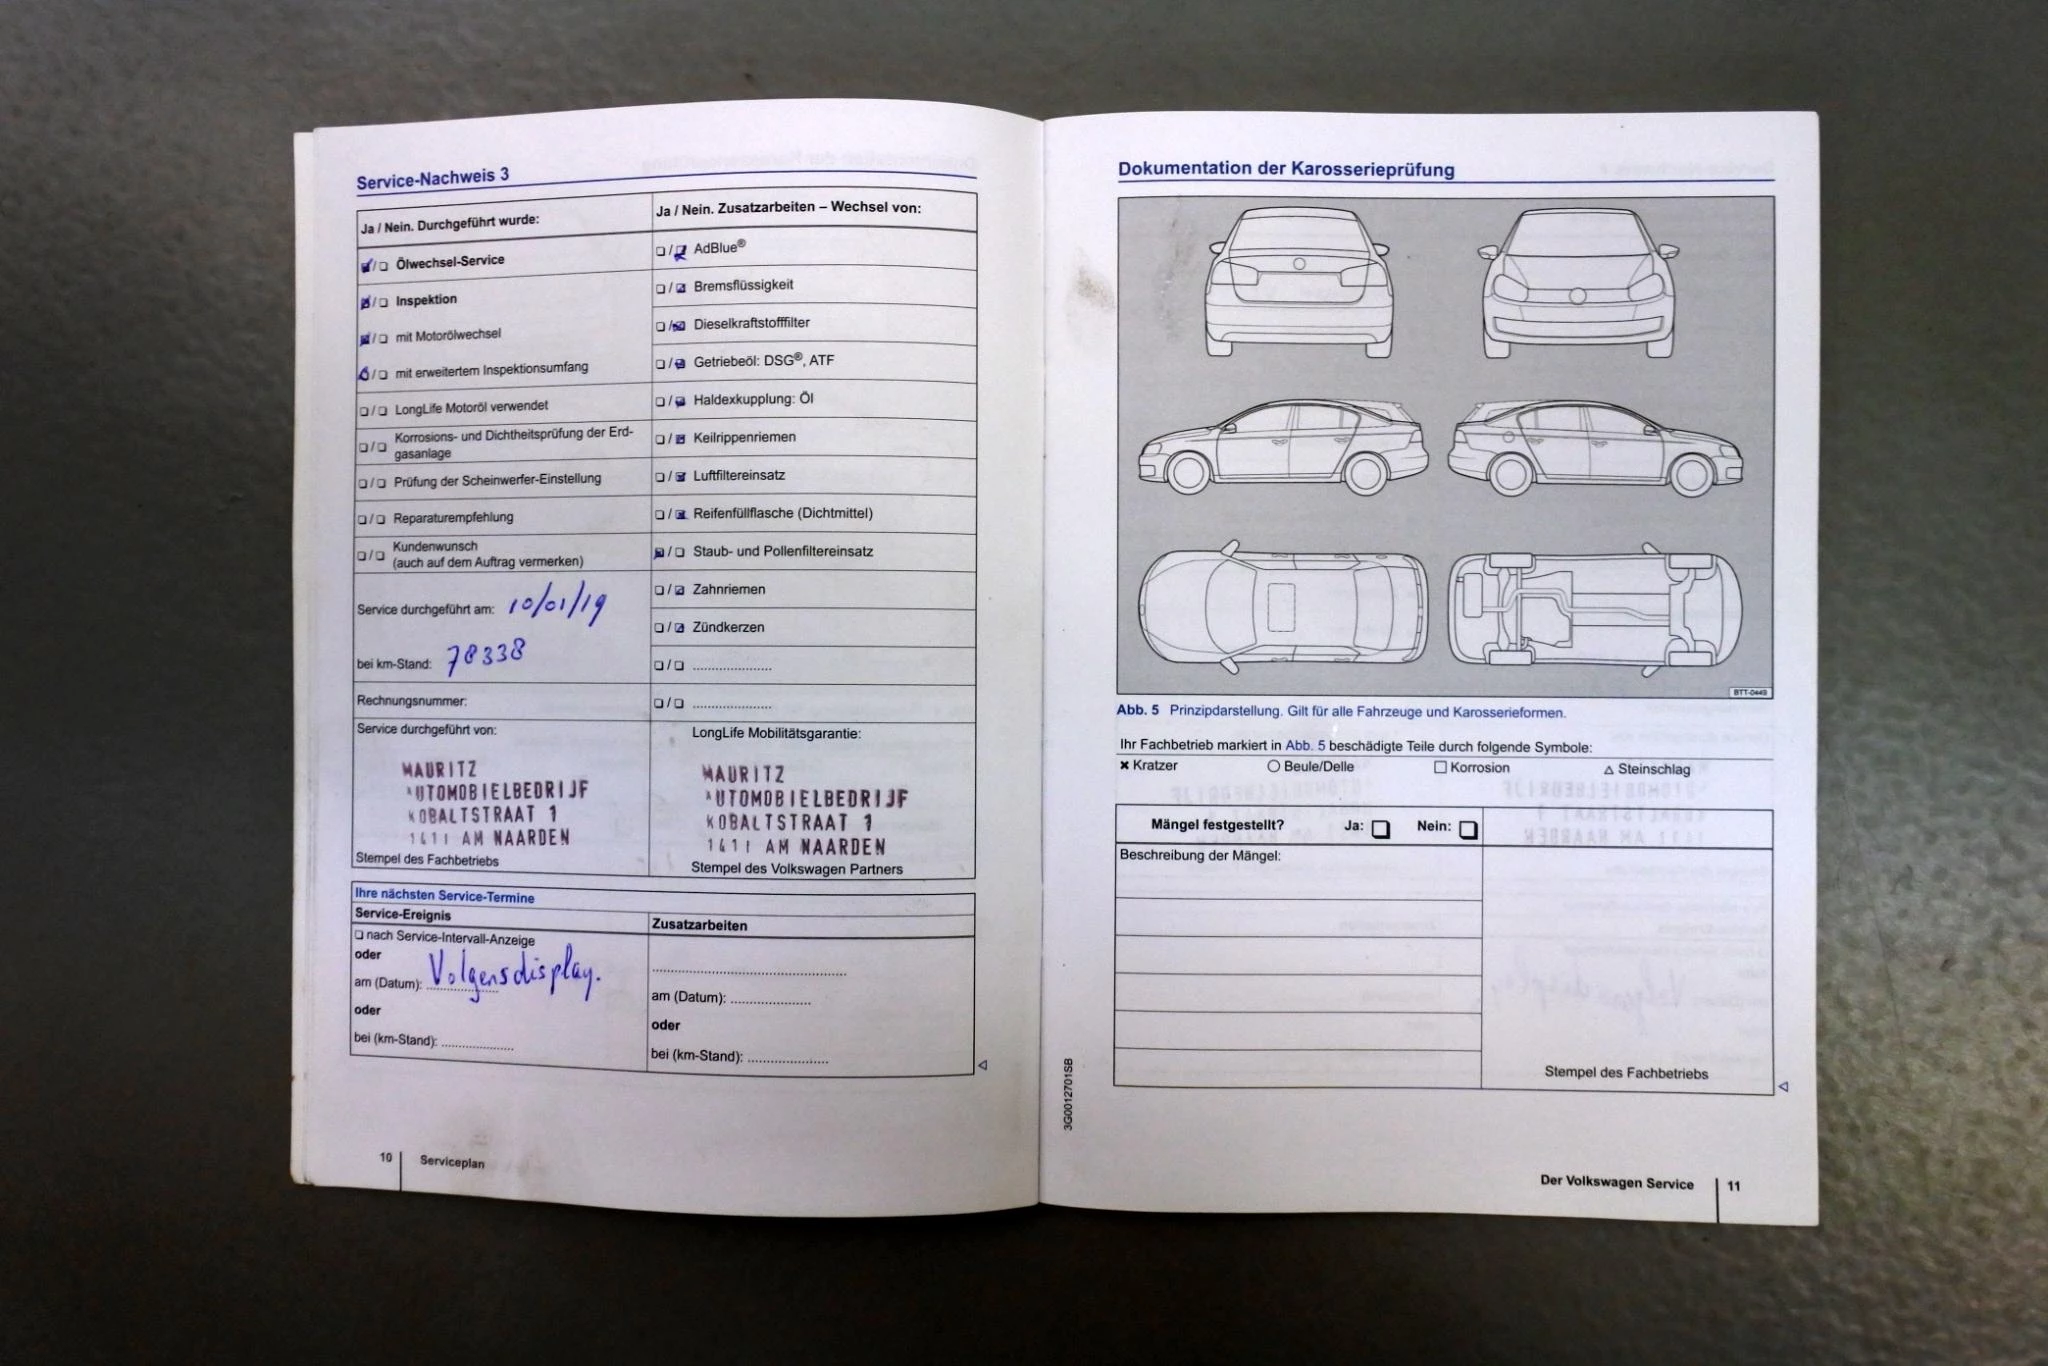 Service-Nachweis 3
Ja / Nein. Durchgeführt wurde:
Ölwechsel-Service
Inspektion
mit Motorölwechsel
mit erweitertem Inspektionsumfang
LongLife Motoröl verwendet
Korrosions- und Dichtheitsprüfung der Erd-
gasanlage
Prüfung der Scheinwerfer-Einstellung
Reparaturempfehlung
Kundenwunsch
(auch auf dem Auftrag vermerken)
Service durchgeführt am: 10/01/19
bei km-Stand: 78338
Rechnungsnummer:
Ja / Nein. Zusatzarbeiten – Wechsel von:
AdBlue®
Bremsflüssigkeit
Dieselkraftstofffilter
Getriebeöl: DSG®, ATF
Haldexkupplung: Öl
Keilrippenriemen
Luftfiltereinsatz
Reifenfüllflasche (Dichtmittel)
Staub- und Pollenfiltereinsatz
Zahnriemen
Zündkerzen
Service durchgeführt von:
MAURITZ
AUTOMOBIELBEDRIJF
KOBALTSTRAAT 1
1411 AM NAARDEN
Stempel des Fachbetriebs
LongLife Mobilitätsgarantie:
MAURITZ
AUTOMOBIELBEDRIJF
KOBALTSTRAAT 1
1411 AM NAARDEN
Stempel des Volkswagen Partners
Ihre nächsten Service-Termine
Service-Ereignis
nach Service-Intervall-Anzeige
oder
am (Datum): Volgens display.
oder
bei (km-Stand):
Zusatzarbeiten
am (Datum):
oder
bei (km-Stand):
10 Serviceplan
Dokumentation der Karosserieprüfung
BTT-0449
Abb. 5 Prinzipdarstellung. Gilt für alle Fahrzeuge und Karosserieformen.
Ihr Fachbetrieb markiert in Abb. 5 beschädigte Teile durch folgende Symbole:
Kratzer Beule/Delle Korrosion Steinschlag
Mängel festgestellt? Ja: Nein:
Beschreibung der Mängel:
Stempel des Fachbetriebs
3G0012701SB
Der Volkswagen Service 11